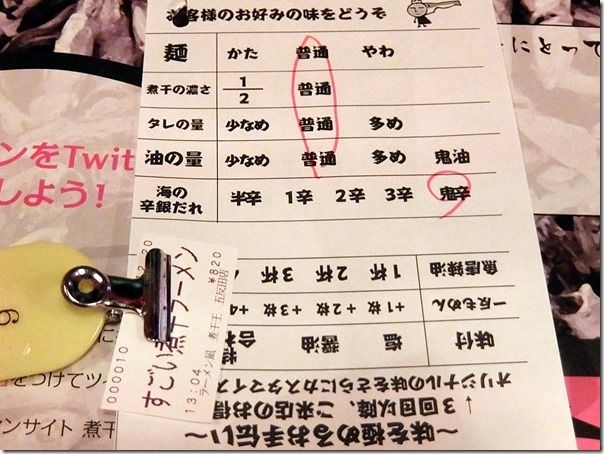 お客様のお好みの味をどうぞ
麺 かた 普通 やわ
煮干の濃さ 1/2 普通
タレの量 少なめ 普通 多め
油の量 少なめ 普通 多め 鬼油
海の辛銀だれ 半辛 1辛 2辛 3辛 鬼辛
～味を極めるお手伝い～
3回目以降、ご来店のお得
オリジナルの味をさらにカスタマイズ
味付 塩 醤油
一反もめん +1枚 +2枚 +3枚 +4
魚唐辣油 1杯 2杯 3杯
000010
すごい煮干ラーメン
¥820
13:04
ラーメン凪 煮干王 五反田店
ンをTwit
しよう!
にとって
をつけてツイ
ンサイト 煮干
6